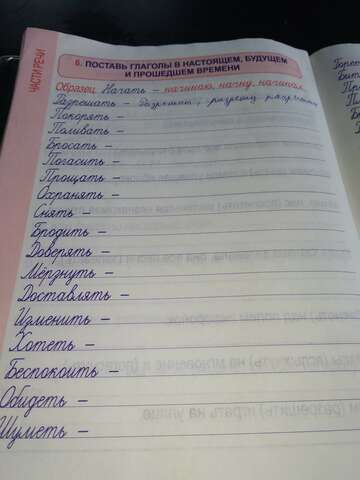 ЧАСТИ РЕЧИ
6. ПОСТАВЬ ГЛАГОЛЫ В НАСТОЯЩЕМ, БУДУЩЕМ
И ПРОШЕДШЕМ ВРЕМЕНИ
Образец. Начать – начинаю, начну, начинал.
Разрешать –
Покорять –
Поливать –
Бросать –
Погасить –
Прощать –
Охранять –
Снять –
Бродить –
Доверять –
Мёрзнуть –
Доставлять –
Изменить –
Хотеть –
Беспокоить –
Обидеть –
Шуметь –